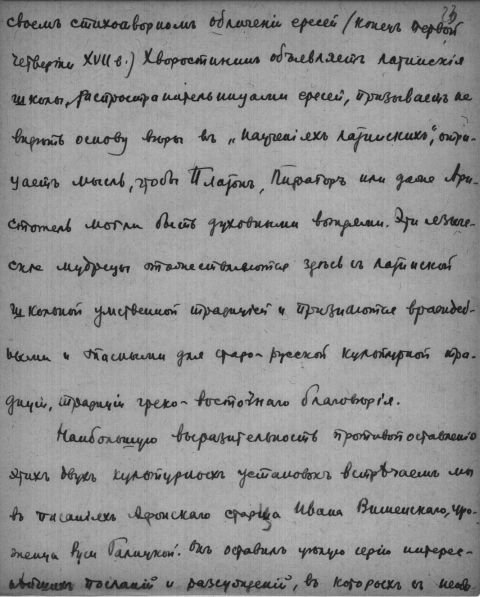 23
своемъ стихотворномъ обличеніи ересей (конецъ первой
четверти XVII в.) Хворостининъ объявляетъ латинскія
школы „распространительницами ересей, призываетъ не
видѣть основу вѣры въ „наученіяхъ латинскихъ“, отри-
цаетъ мысль, чтобы Платонъ, Пифагоръ или даже Ари-
стотель могли быть духовными вождями. Эти языче-
скіе мудрецы отожествляются здѣсь съ латинской
школьной умственной традиціей и признаются враждеб-
ными и опасными для старо-русской культурной тра-
диціи, традиціи греко-восточнаго благовѣрія.
Наибольшую выразительность противопоставленію
этихъ двухъ культурныхъ установокъ встрѣчаемъ мы
въ писаніяхъ Афонскаго старца Ивана Вишенскаго, уро-
женца Руси Галицкой. Онъ оставилъ цѣлую серію интерес-
нѣйшихъ посланій и разсужденій, въ которыхъ съ